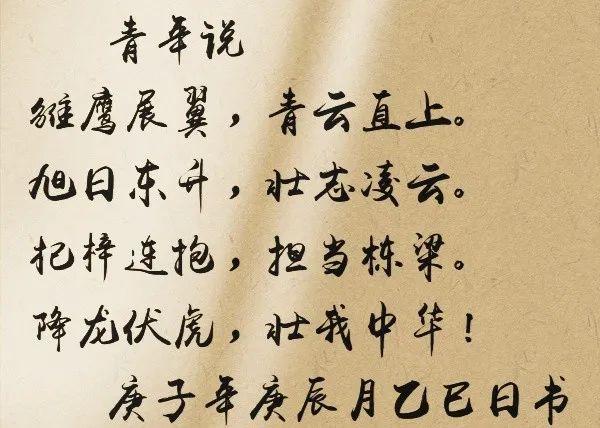 青年说
雏鹰展翼，青云直上。
旭日东升，壮志凌云。
杞梓连抱，担当栋梁。
降龙伏虎，壮我中华！
庚子年庚辰月乙巳日书